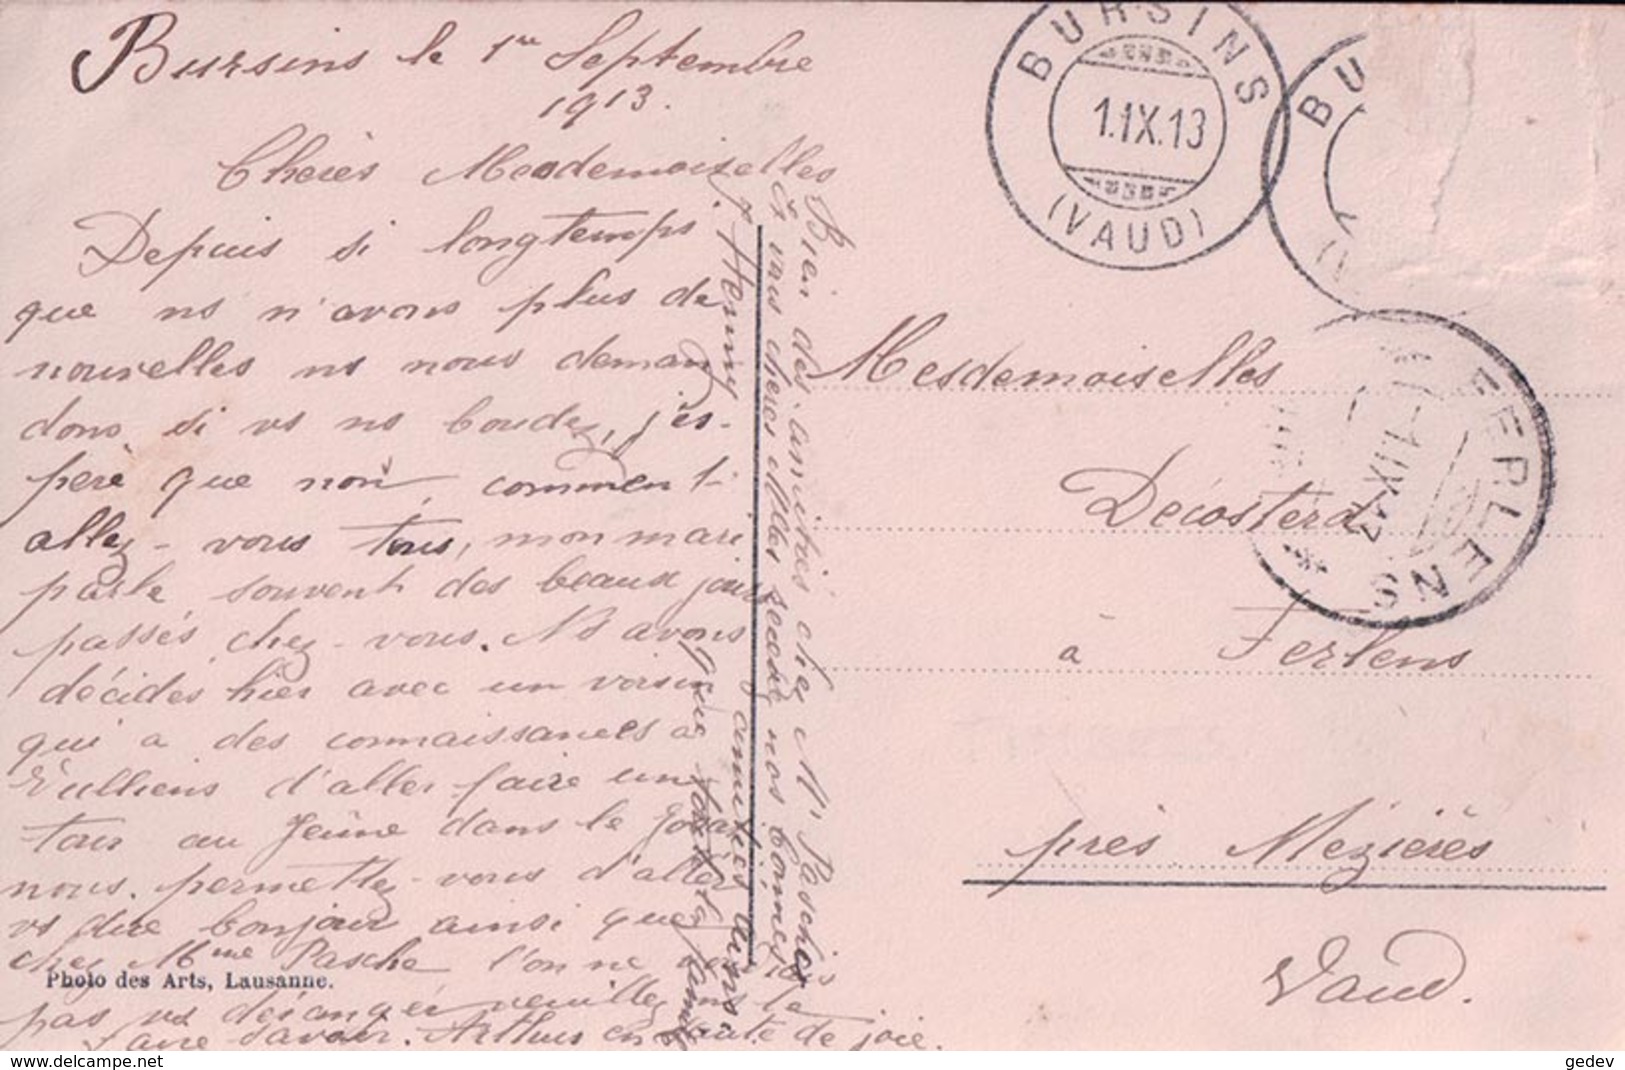 Bursins le 1re Septembre
1913.
Cheres Mesdemoiselles
Depuis si longtemps
que ns n'avons plus de
nouvelles ns nous deman
dons, si vs ns boudez, j'es-
père que non, comment
allez-vous tous, mon mari
parle souvent des beaux jours
passés chez-vous. Ns avons
décidés hier avec un voisin
qui a des connaissances à
Vulliens d'aller faire un
tour au Jeûne dans le
nous permettez-vous d'aller
vs dire bonjour ainsi que
chez Mme Pasche l'on ne
pas vs déranger veuillez ns le
faire savoir. Arthur en saute de joie.
Bien des amitiés chez Mr Pasche
et vous cheres Mlles recevez nos bonnes
amitiés
que toute la famille
Henny
Photo des Arts, Lausanne.
BURSINS
1.IX.13
(VAUD)
BU
FERLENS
-1.IX.13
Mesdemoiselles
Décosterd
à Ferlens
près Mézières
Vaud.
gedev